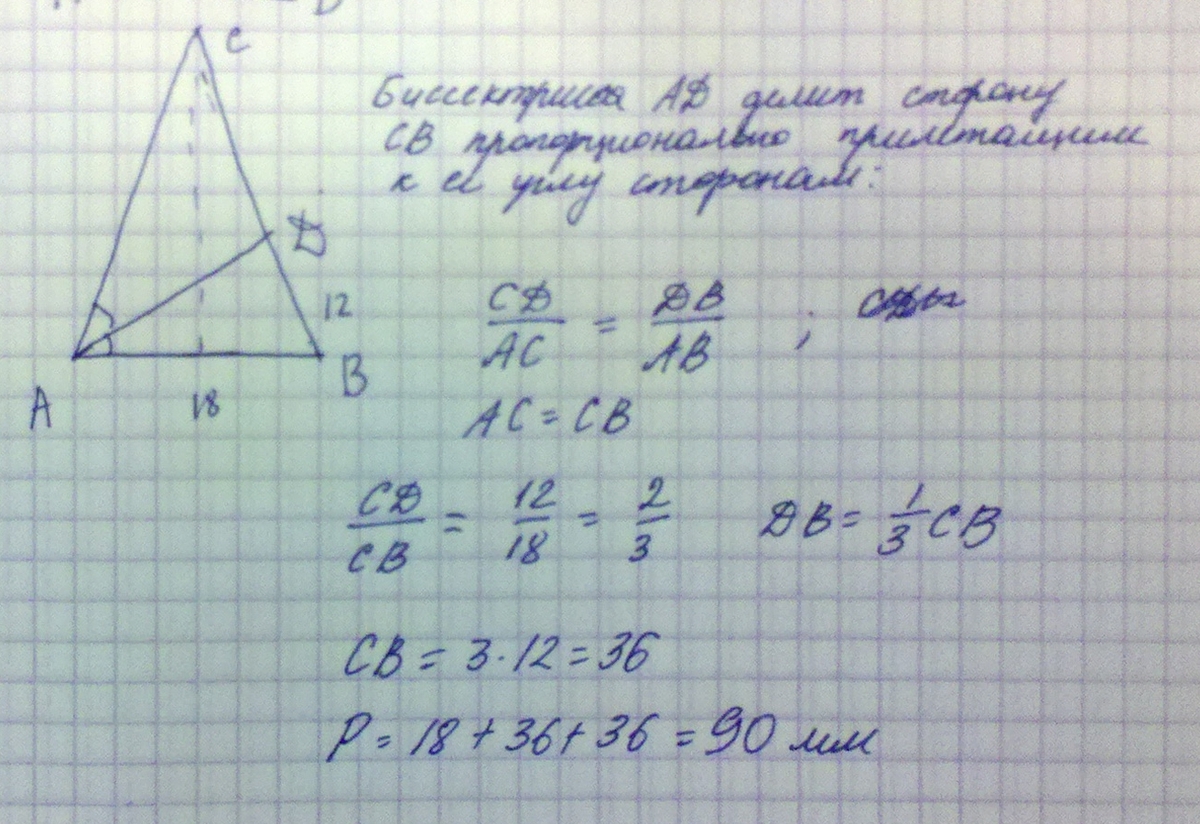 C
Биссектриса AD делит сторону
CB пропорционально прилежащим
к ее углу сторонам:
D
12
A
18
B
CD/AC = DB/AB ;
AC = CB
CD/CB = 12/18 = 2/3 DB = 1/3 CB
CB = 3 · 12 = 36
P = 18 + 36 + 36 = 90 мм